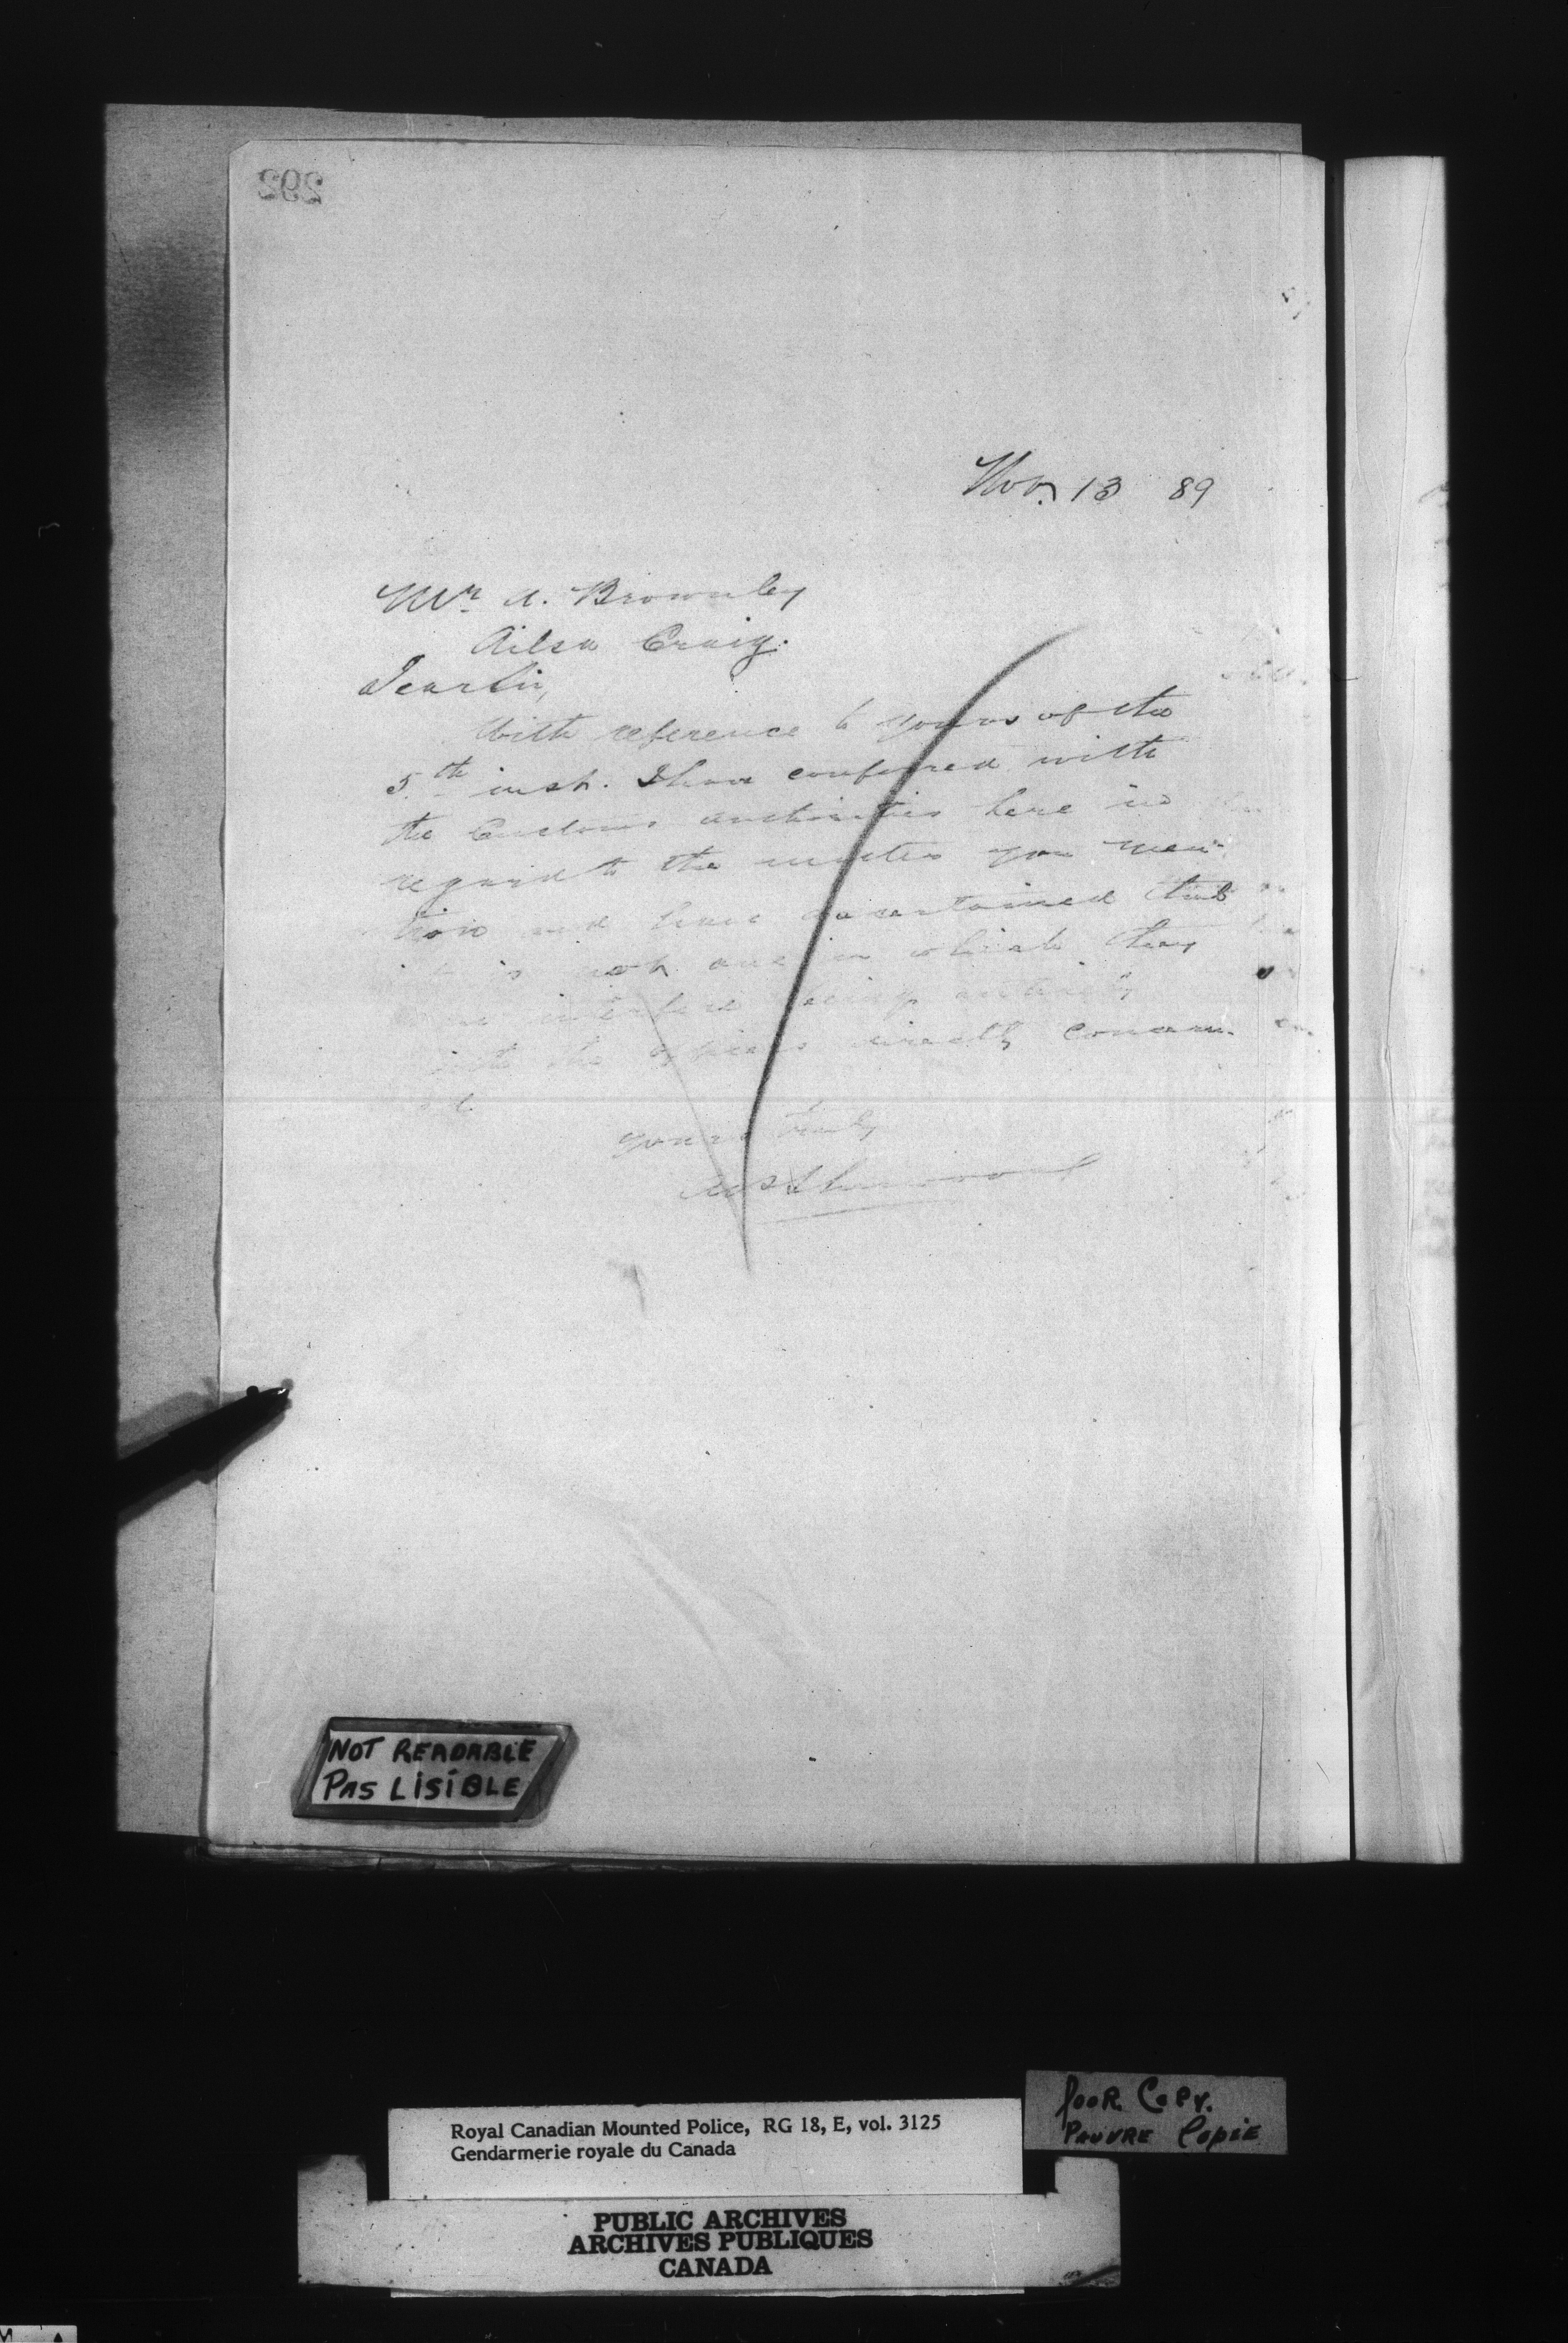 292
Nov. 13 89
Mr. A. Brownley
Ailsa Craig.
Dear Sir,
With reference to yours of the
5.th inst. I have conferred with
the Customs authorities here in
regard to the matter you men-
tion and have ascertained that
it is not one in which they
interfere being entirely
with the officers directly concern-
ed.
Yours truly
A P Sherwood
NOT READABLE
PAS LISIBLE
POOR COPY.
PAUVRE COPIE
Royal Canadian Mounted Police, RG 18, E, vol. 3125
Gendarmerie royale du Canada
PUBLIC ARCHIVES
ARCHIVES PUBLIQUES
CANADA